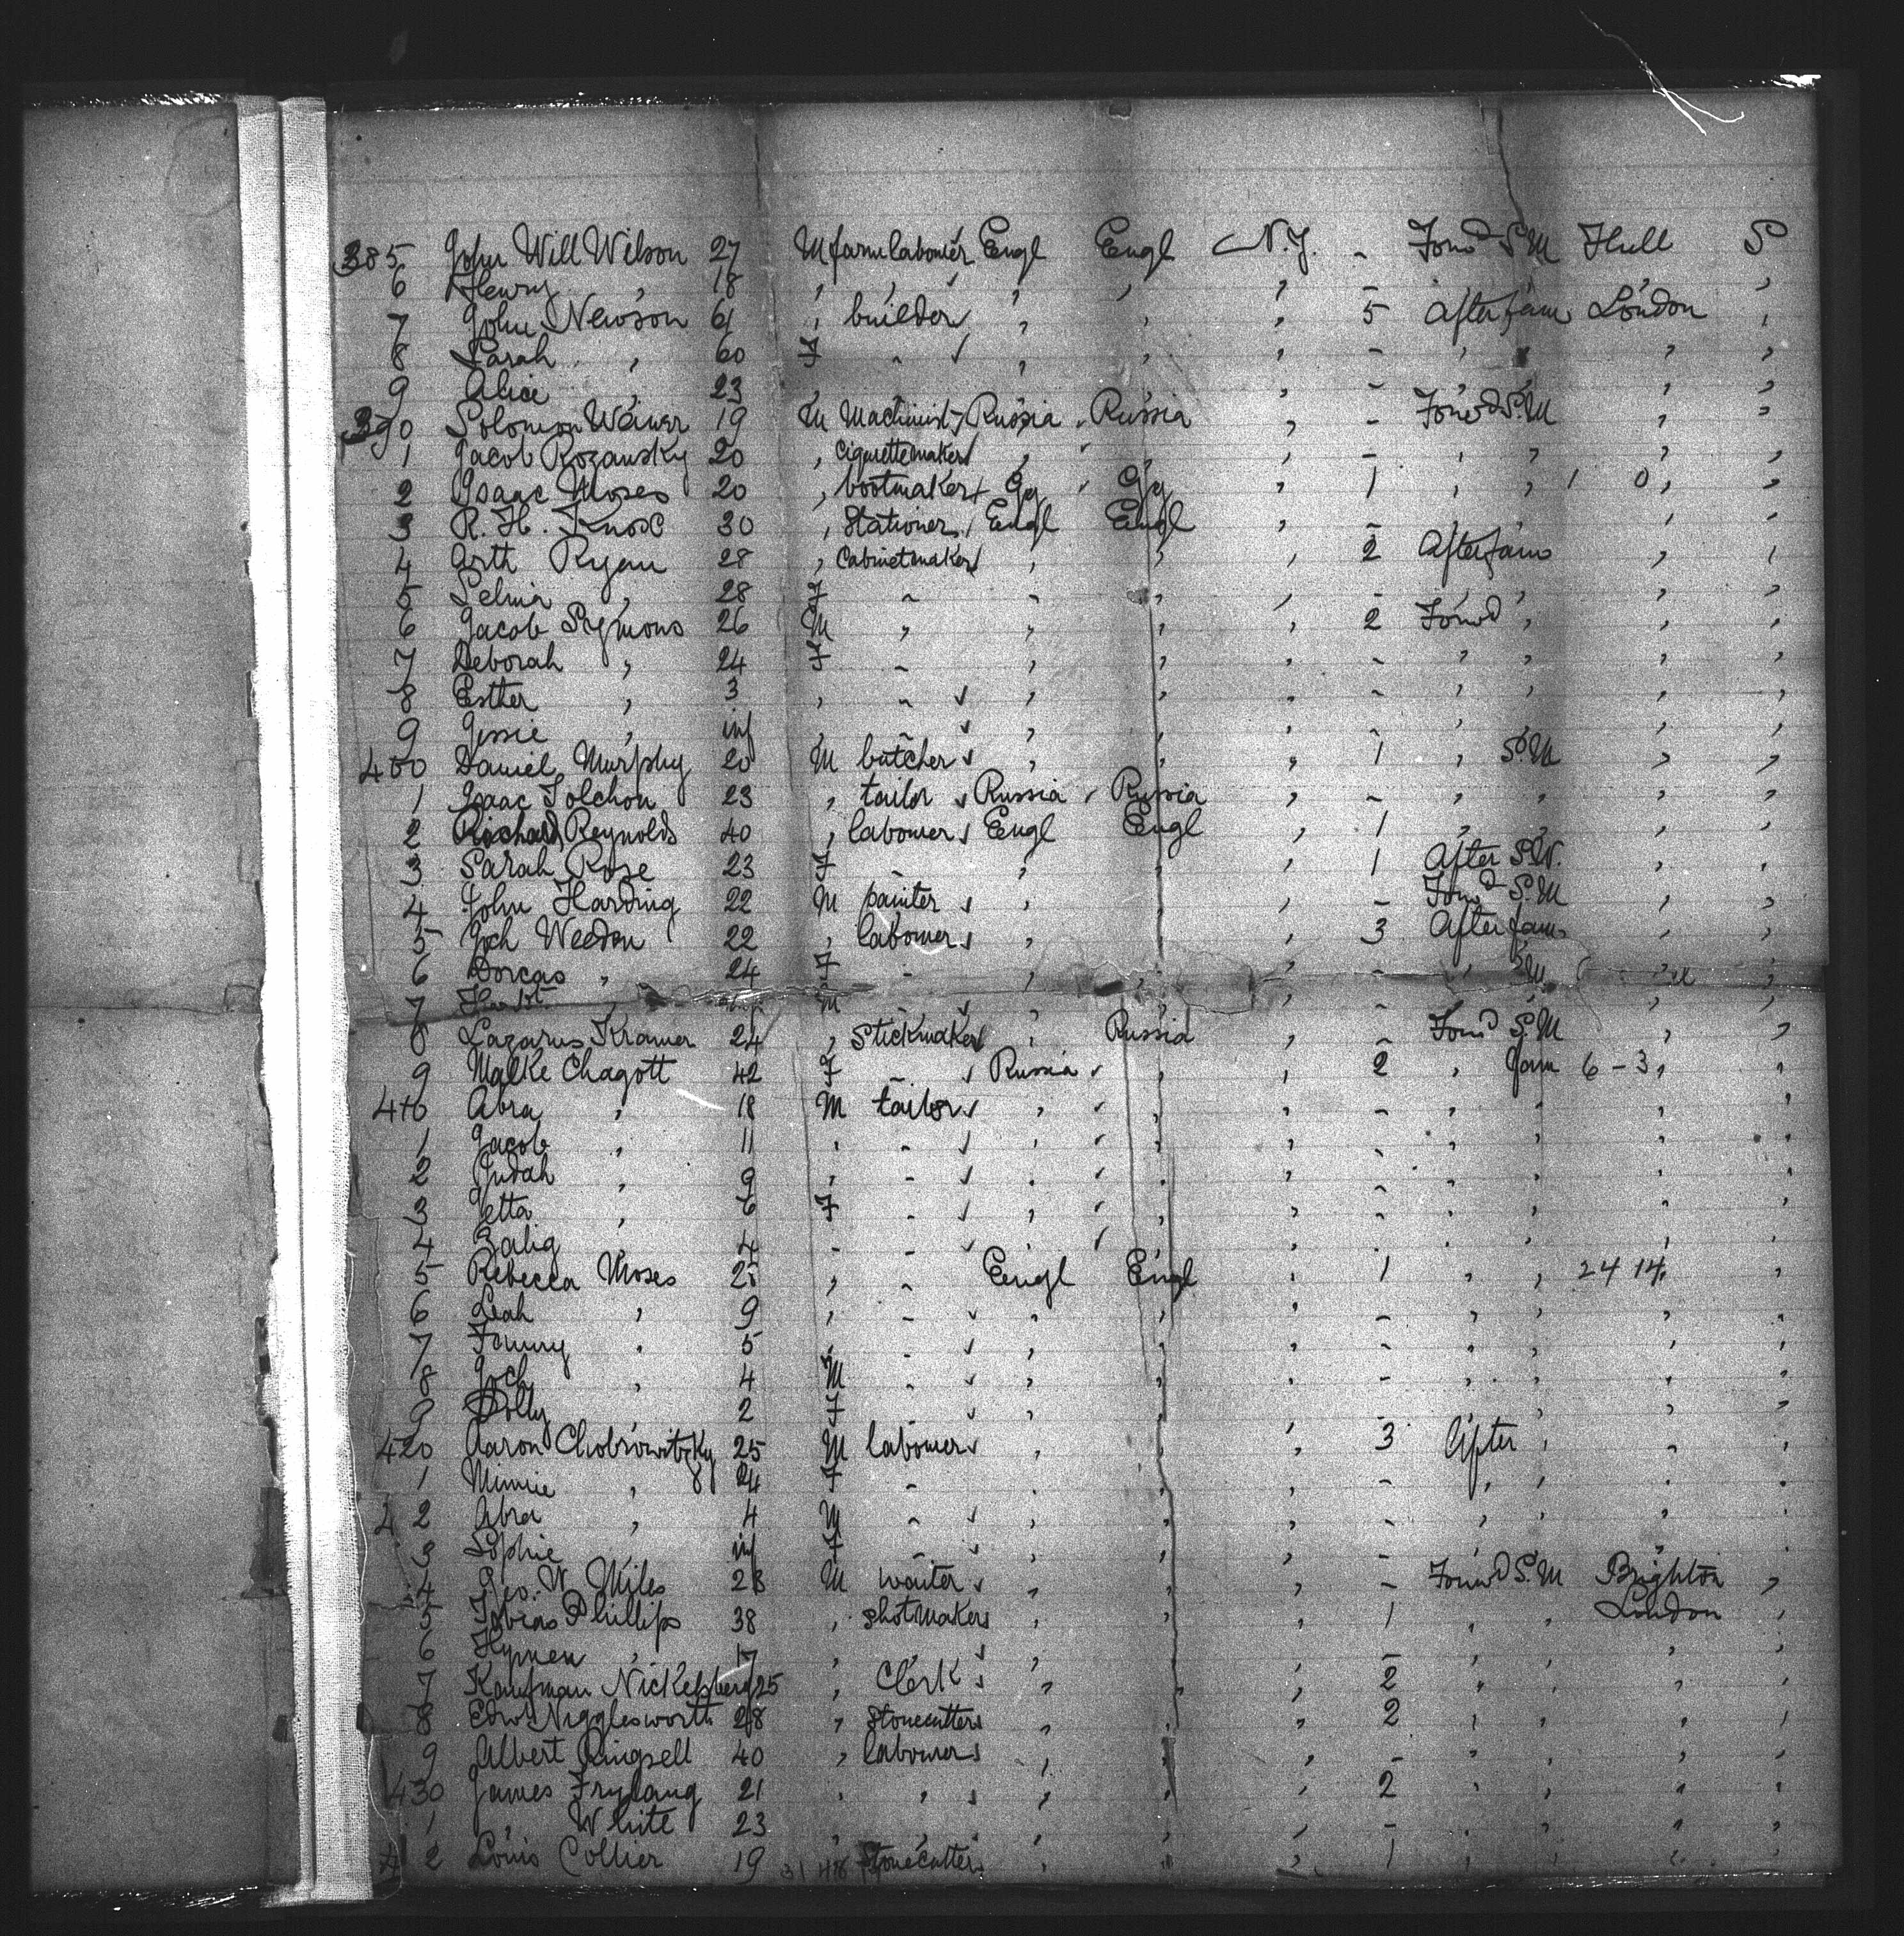 385 John Will Wilson 27 M farm labourer Engl Engl N.Y. - Forwd S.M Hull S
6 Henry , 18 , , , , , - , , , ,
7 John Newson 61 , builder , , , 5 After fam London ,
8 Sarah , 60 F - , , , - , , , ,
9 Alice , 23 , , , , - , , , ,
390 Solomon Weiner 19 M Machinist Russia Russia , - Forwd S.M , ,
1 Jacob Rozansky 20 , Cigarettemaker , , , - , , , ,
2 Isaac Moses 20 , bootmaker Gy Gy , 1 , , 1 0 , ,
3 R. H. Knox 30 , Stationer Engl Engl , - , , , ,
4 Arth Ryan 28 , Cabinetmaker , , , 2 After fam , ,
5 Selina , 28 F - - , , - , , , ,
6 Jacob Symons 26 M , , , , 2 Forwd , , ,
7 Deborah , 24 F - , , , - , , , ,
8 Esther , 3 , - , , , - , , , ,
9 Jessie , inf , - , , , - , , , ,
400 Daniel Murphy 20 M butcher , , , 1 , S.M , ,
1 Isaac Solchon 23 , tailor Russia Russia , - , , , ,
2 Richard Reynolds 40 , labourer Engl Engl , 1 , , , ,
3 Sarah Rose 23 F - , , , 1 After S.W. , ,
4 John Harding 22 M painter , , , - Forwd S.M , ,
5 Jos Weedon 22 , labourer , , , 3 After fam , ,
6 Dorcas , 24 F - , , , - , , ,
7 , inf M - , , , - , , , ,
8 Lazarus Kramer 24 , Stickmaker , Russia , - Forwd S.M , ,
9 Malke Chagott 42 F - Russia , , 2 , fam 6 - 3 , ,
410 Abra , 18 M tailor , , , - , , , ,
1 Jacob , 11 , - , , , - , , , ,
2 Judah , 9 , - , , , - , , , ,
3 Jetta , 6 F - , , , - , , , ,
4 Zalig , 4 - - , , , - , , , ,
5 Rebecca Moses 25 , - Engl Engl , 1 , , 24 14 , ,
6 Leah , 9 , - , , , - , , , ,
7 Fanny , 5 , - , , , - , , , ,
8 Jos , 4 M - , , , - , , , ,
9 Dolly , 2 F - , , , - , , , ,
420 Aaron Chobrowitzky 25 M labourer , , , 3 After , , ,
1 Minnie , 24 F - , , , - , , , ,
2 Abra , 4 M - , , , - , , , ,
3 Sophie , inf F - , , , - , , , ,
4 Geo. W Miles 28 M waiter , , , - Forwd S.M Brighton ,
5 Tobias Phillips 38 , shotmaker , , , 1 , , London ,
6 Hymen , 17 , , , , , - , , , ,
7 Kaufman Nickelsberg 25 , Clerk , , , 2 , , , ,
8 Edw Nigglesworth 28 , Stonecutter , , , 2 , , , ,
9 Albert Ringsell 40 , labourer , , , - , , , ,
430 James Frylang 21 , , , , , 2 , , , ,
1 , White 23 , , , , , - , , , ,
2 Louis Collier 19 31 48 Stonecutter , , , 1 , , , ,